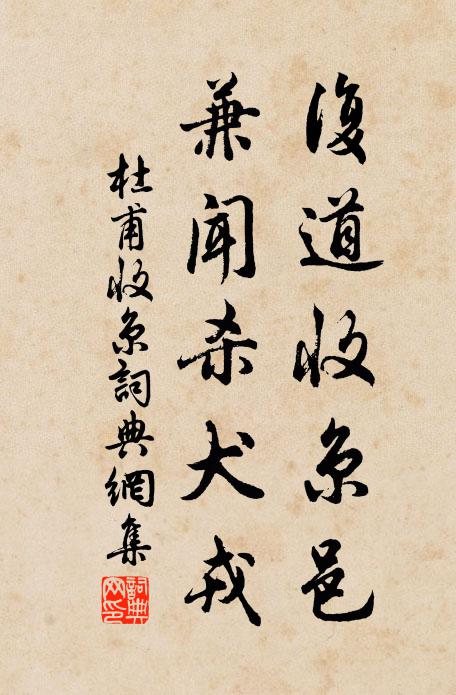 復道收京邑
兼聞殺犬戎
杜甫收京詞典網集
詞典網印